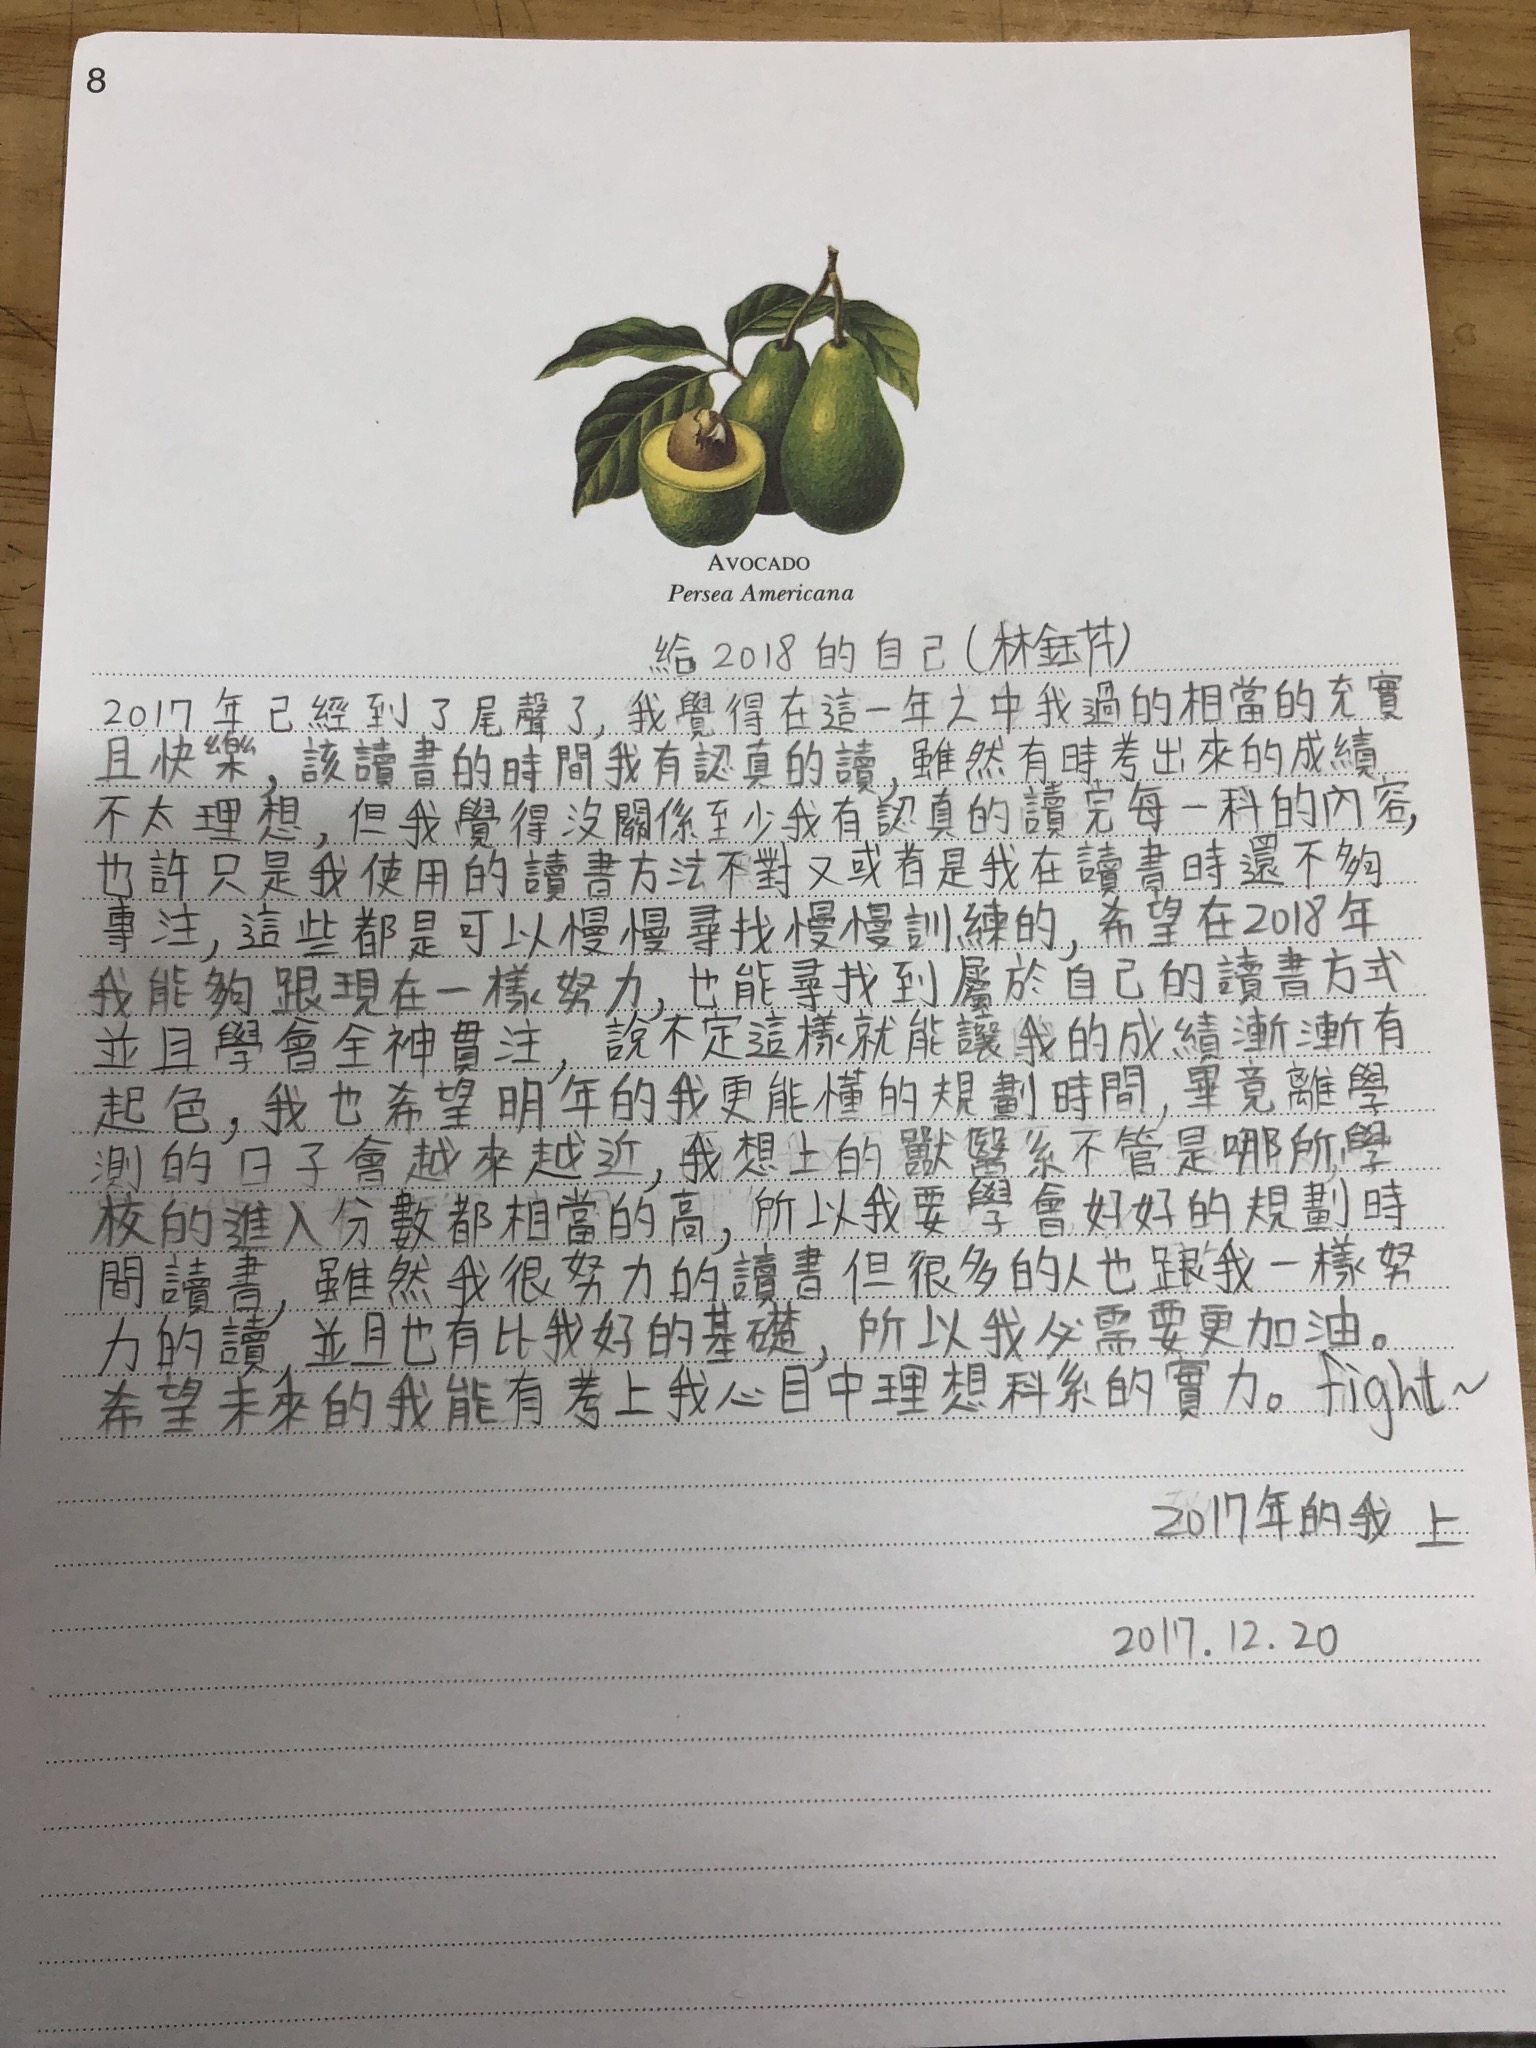 8
AVOCADO
Persea Americana
給2018的自己(林鈺芹)
2017年已經到了尾聲了,我覺得在這一年之中我過的相當的充實
且快樂,該讀書的時間我有認真的讀,雖然有時考出來的成績
不太理想,但我覺得沒關係至少我有認真的讀完每一科的內容,
也許只是我使用的讀書方法不對又或者是我在讀書時還不夠
專注,這些都是可以慢慢尋找慢慢訓練的,希望在2018年
我能夠跟現在一樣努力,也能尋找到屬於自己的讀書方式
並且學會全神貫注,說不定這樣就能讓我的成績漸漸有
起色,我也希望明年的我更能懂的規劃時間,畢竟離學
測的日子會越來越近,我想上的獸醫系不管是哪所學
校的進入分數都相當的高,所以我要學會好好的規劃時
間讀書,雖然我很努力的讀書但很多的人也跟我一樣努
力的讀,並且也有比我好的基礎,所以我必需要更加油。
希望未來的我能有考上我心目中理想科系的實力。fight~
2017年的我 上
2017.12.20